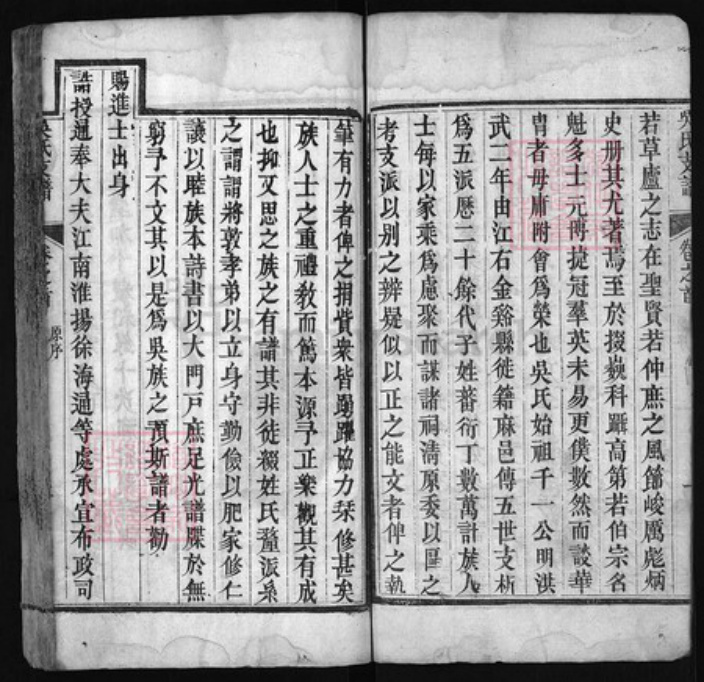 若草廬之志在聖賢若仲庶之風節峻厲彪炳
史册其尤著焉至於掇巍科躡高第若伯宗名
魁多士元博捷冠羣英未易更僕數然而談華
胄者毋庸附會為榮也吳氏始祖千一公明洪
武二年由江右金谿縣徙籍麻邑傳五世支析
為五派歷二十餘代子姓蕃衍丁數萬計族人
士每以家乘為慮聚而謀諸祠清原委以區之
考支派以别之辨疑似以正之能文者俾之執
筆有力者俾之捐貲衆皆踴躍協力栞修甚矣
族人士之重禮教而篤本源予正樂觀其有成
也抑又思之族之有譜其非徒綴姓氏釐派系
之謂謂將敦孝弟以立身守勤儉以肥家修仁
讓以睦族本詩書以大門戸庶足光譜牒於無
窮予不文其以是為吳族之預斯譜者勸
賜進士出身
誥授通奉大夫江南淮揚徐海通等處承宣布政司
原序